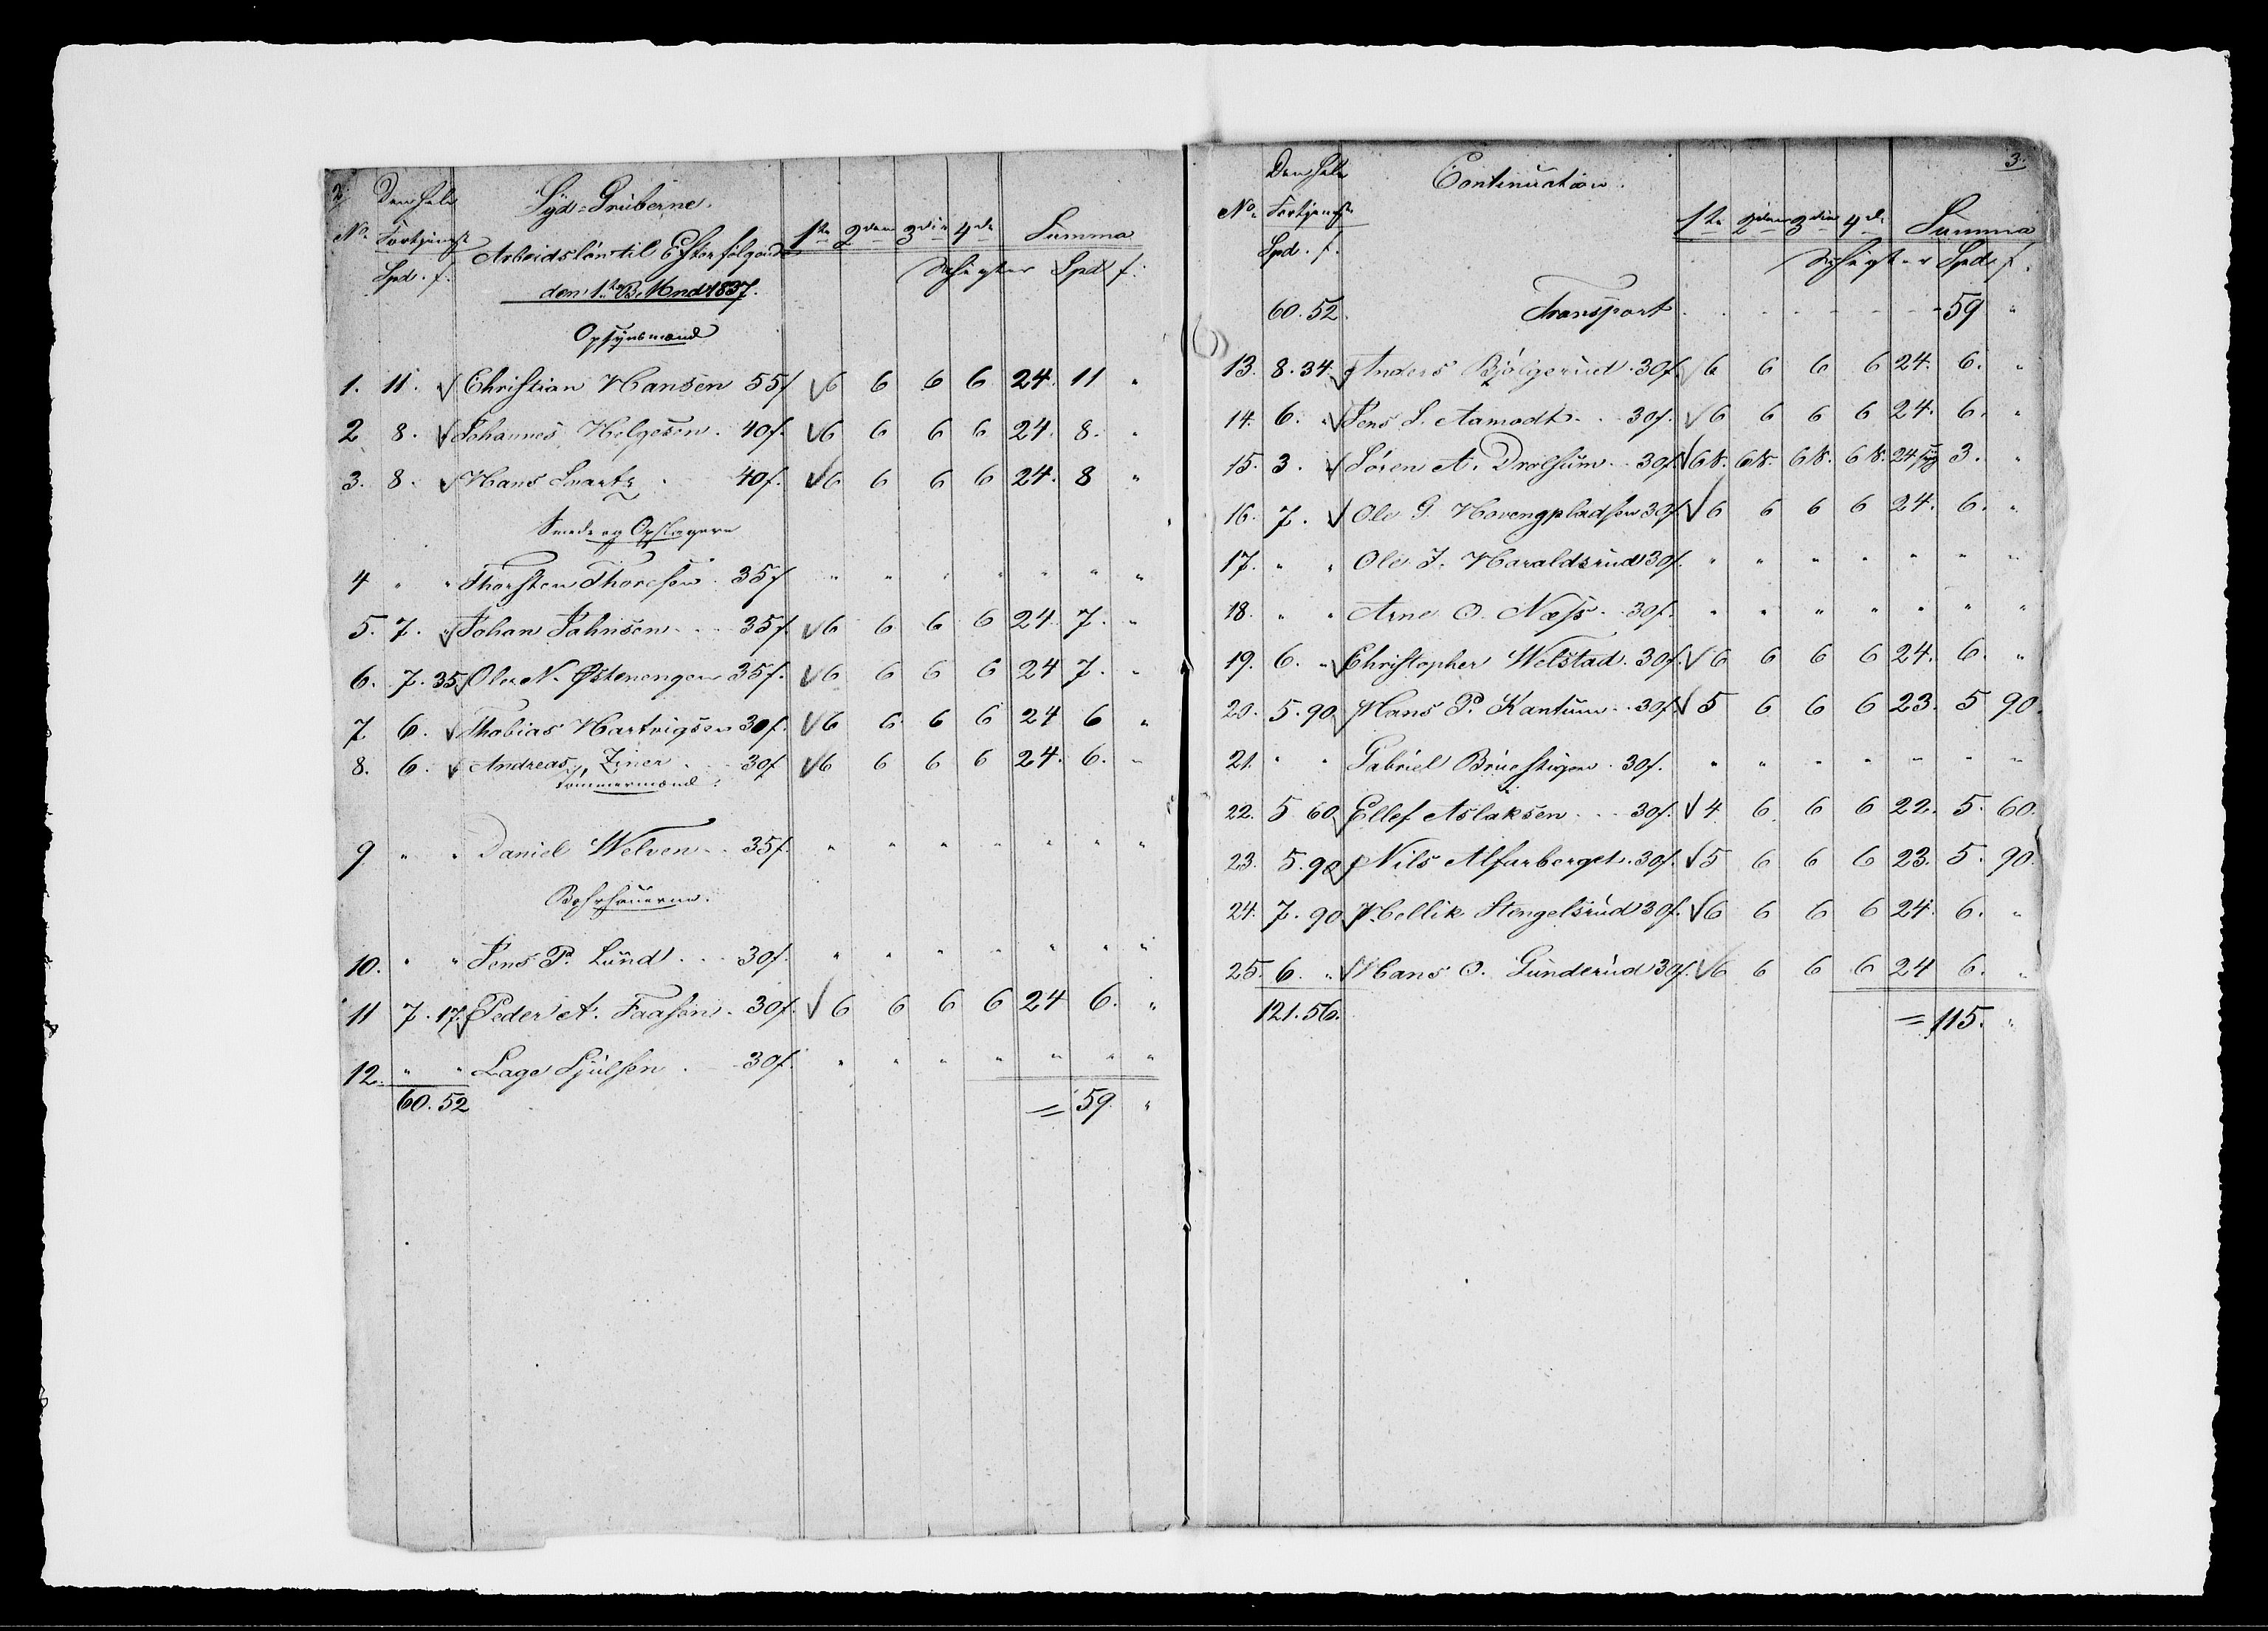 2.
Den hele Syd-Gruberne.
No. Fortjeneste Arbeidsløn til Efterfølgende 1te 2den 3die 4de Summa
Spd. f. den 1te B. Mnd 1837. Schigter Spd f.
Opsynsmænd
1. 11. " Christian Hansen 55f 6 6 6 6 24. 11 "
2 8. " Johannes Helgesen. 40f. 6 6 6 6 24. 8. "
3. 8. " Hans Svartz 40f. 6 6 6 6 24. 8 "
Smede og Opslagere
4 " " Thorsten Thoresen. 35f " " " " " " "
5. 7. " Johan Jahnsen 35f. 6 6 6 6 24. 7. "
6. 7. 35 Ole N. Østenengen 35f. 6 6 6 6 24 7. "
7 6. " Thobias Hartvigsen 30f. 6 6 6 6 24 6 "
8. 6. " Andreas Ziner 30f 6 6 6 6 24. 6. "
Tømmermænd.
9 " " Daniel Welven 35f. " " " " " " "
Bohrhauerne.
10. " " Jens P. Lund 30f. " " " " " " "
11 7. 17. Peder A. Faasen. 30f. 6 6 6 6 24 6. "
12. " " Lage Sjulsen 30f. " " " " " " "
60. 52 = 59. "
3.
Den hele Continuation.
No. Fortjeneste 1te 2den 3die 4de Summa
Spd. f. Schigter Spd. f.
60. 52. Transport 59 "
13. 8. 34. Anders Bjølgerud. 30f. 6 6 6 6 24. 6. "
14. 6. " Jens L. Aamodt 30f. 6 6 6 6 24. 6. "
15. 3. " Søren A. Drolsum 30f. 6 S. 6 S. 6 S. 6 S. 24 syg 3. "
16. 7. " Ole G Hovengpladsen 30f. 6 6 6 6 24. 6. "
17. " " Ole J. Haraldsrud 30f. " " " " " " "
18. " " Arne O. Næss 30f. " " " " " " "
19. 6. " Christopher Welstad. 30f. 6 6 6 6 24. 6. "
20. 5. 90 Hans P. Kantum 30f. 5 6 6 6 23. 5 90.
21. " " Gabriel Bruestigen. 30f. " " " " " " "
22. 5 60 Ellef Aslaksen 30f. 4 6 6 6 22. 5. 60.
23. 5. 90 Nils Alfarberget. 30f. 5 6 6 6 23. 5. 90.
24. 7. 90 Hellik Stengelsrud 30f. 6 6 6 6 24. 6. "
25. 6. " Hans O. Gunderud 30f. 6 6 6 6 24 6. "
121. 56. = 115. "